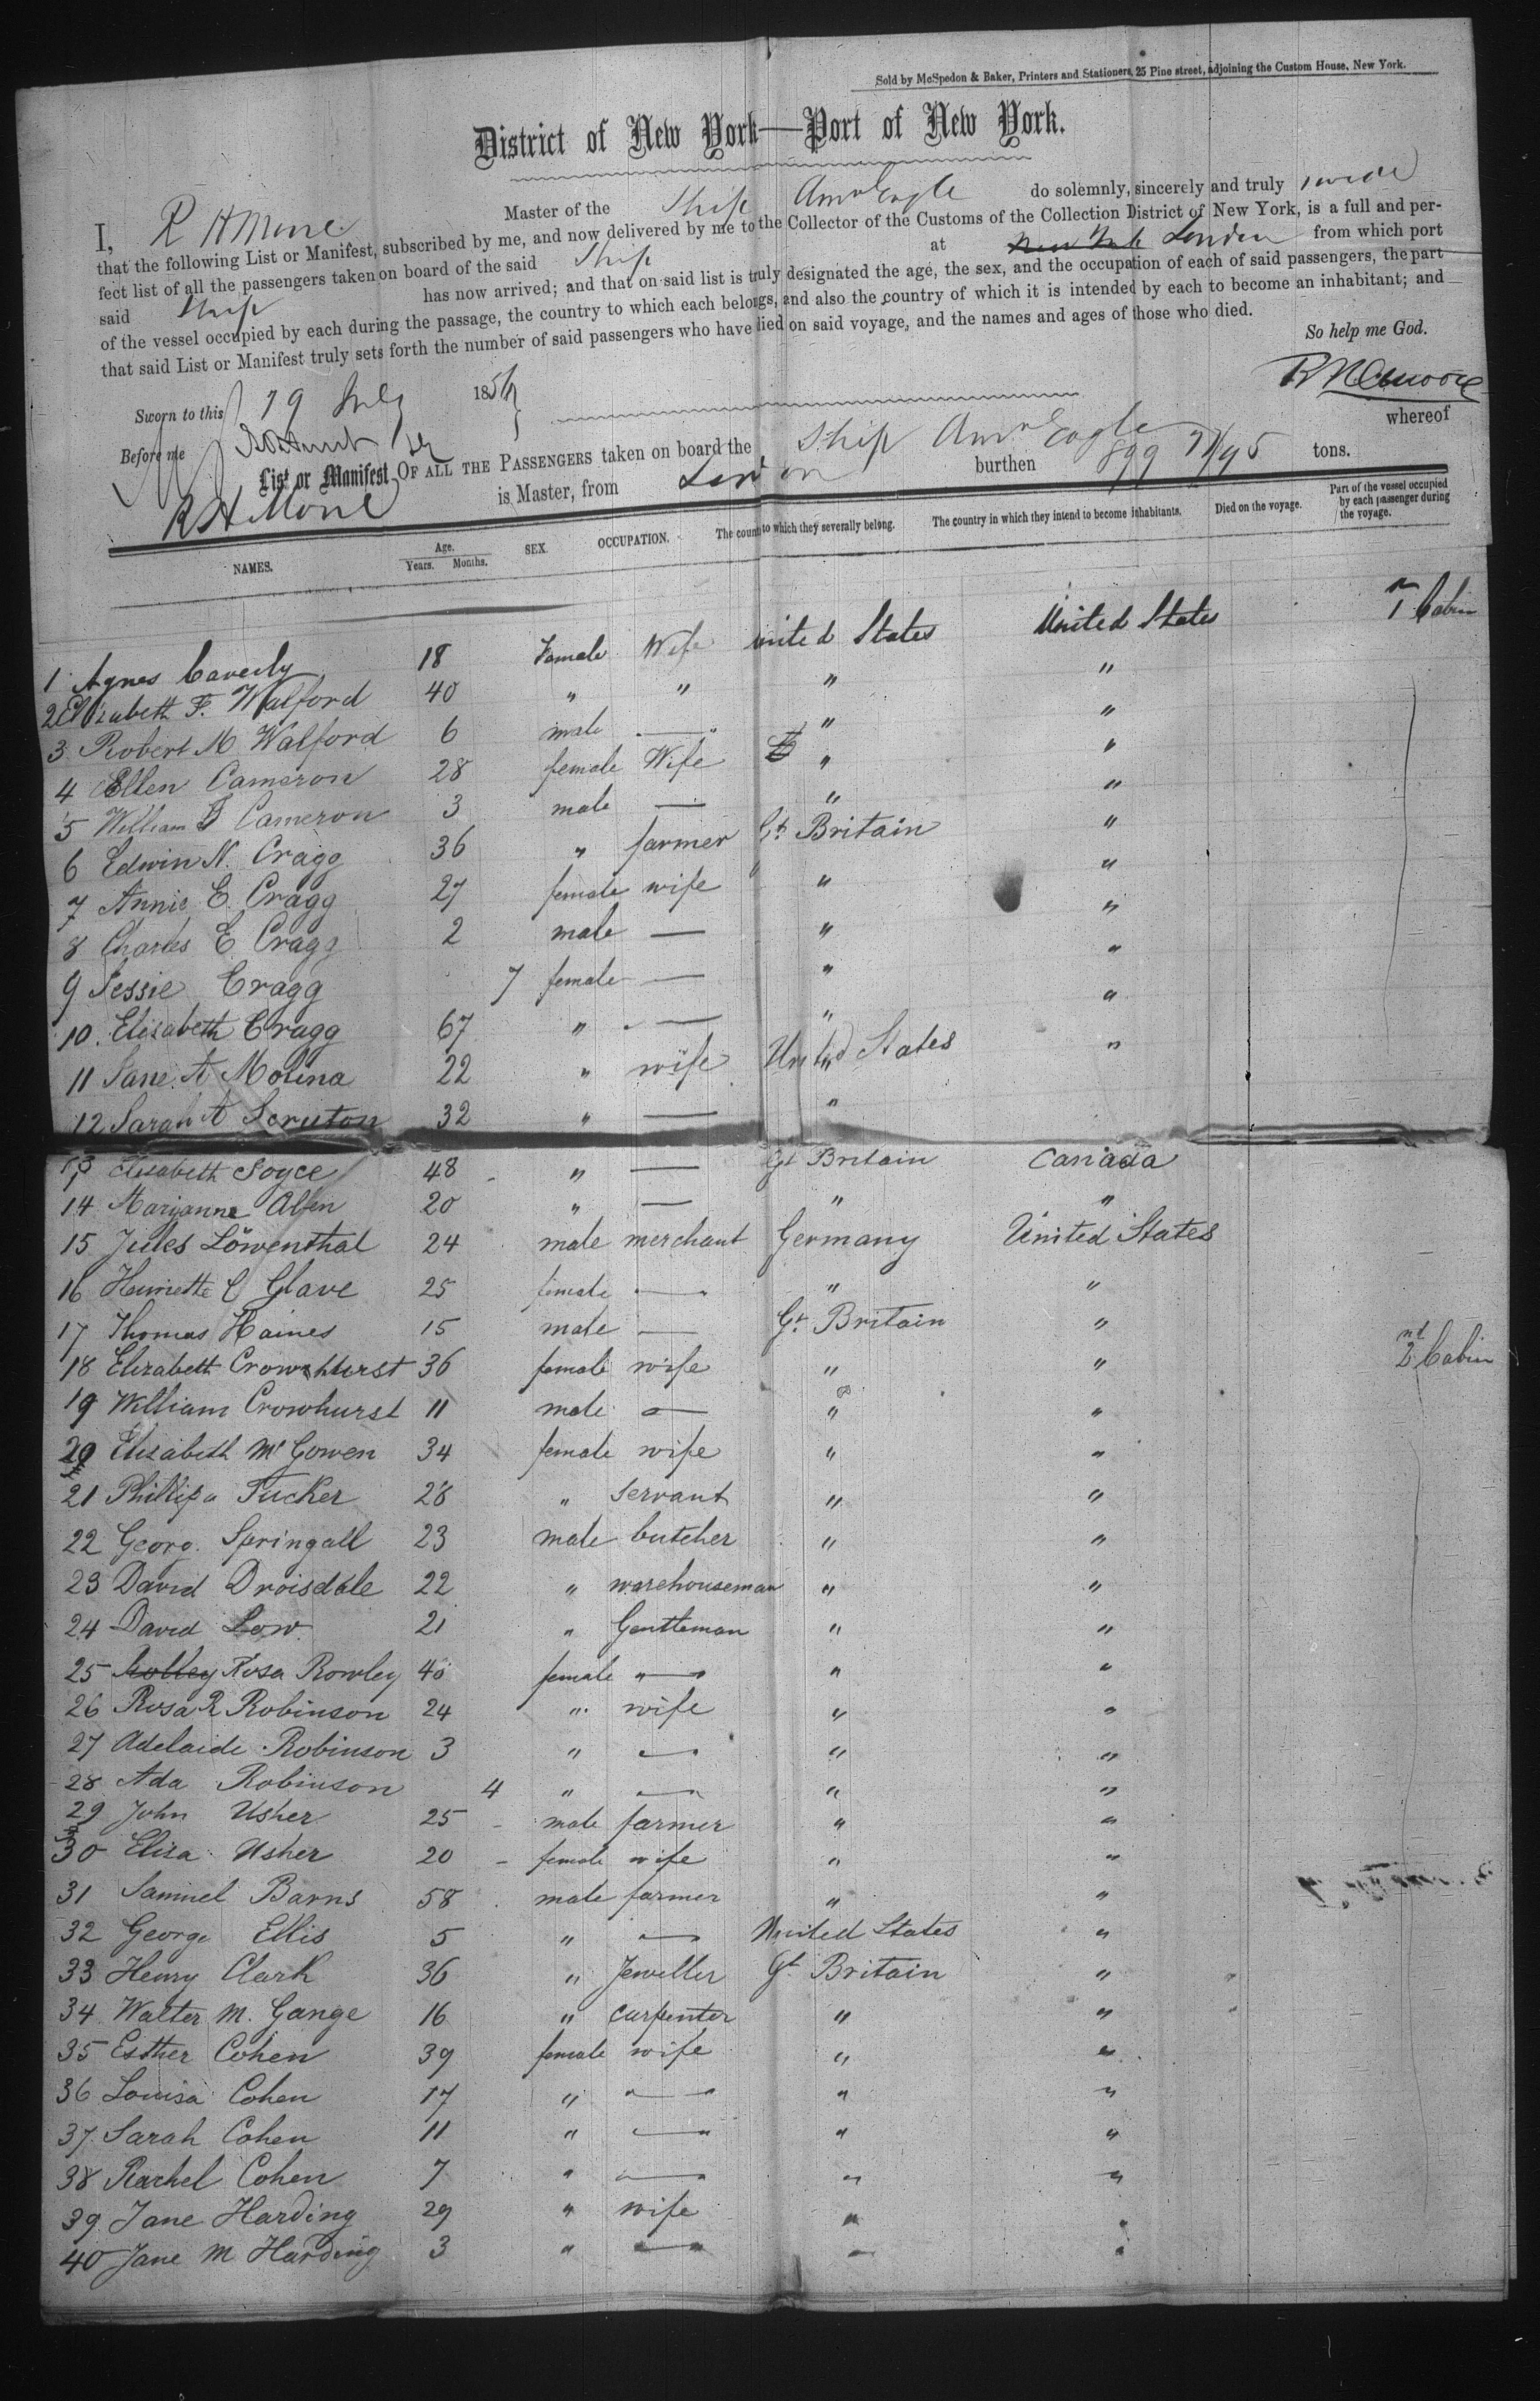 Sold by McSpedon & Baker, Printers and Stationers, 25 Pine street, adjoining the Custom House, New York.
District of New York—Port of New York.
I, Master of the Ship Amn Eagle do solemnly, sincerely and truly
that the following List or Manifest, subscribed by me, and now delivered by me to the Collector of the Customs of the Collection District of New York, is a full and per-
fect list of all the passengers taken on board of the said Ship at London from which port
said Ship has now arrived; and that on said list is truly designated the age, the sex, and the occupation of each of said passengers, the part
of the vessel occupied by each during the passage, the country to which each belongs, and also the country of which it is intended by each to become an inhabitant; and
that said List or Manifest truly sets forth the number of said passengers who have died on said voyage, and the names and ages of those who died.
So help me God.
Sworn to this 19 July 185
Before me
List or Manifest OF ALL THE PASSENGERS taken on board the Ship Amn Eagle whereof
is Master, from London burthen tons.
NAMES. Age. Years. Months. SEX. OCCUPATION. The country to which they severally belong. The country in which they intend to become inhabitants. Died on the voyage. Part of the vessel occupied by each passenger during the voyage.
1 Agnes Caverly 18 Female Wife United States United States 1 Cabin
2 Elizabeth F. Walford 40 " " " "
3 Robert M Walford 6 male — " "
4 Ellen Cameron 28 female Wife " "
5 William Cameron 3 male — " "
6 Edwin N. Cragg 36 " farmer Gt Britain "
7 Annie E. Cragg 27 female wife " "
8 Charles E. Cragg 2 male — " "
9 Jessie Cragg 7 female — " "
10 Elizabeth Cragg 67 " — " "
11 Jane A Molina 22 " wife United States "
12 Sarah A Scruton 32 " — "
13 Elisabeth Joyce 48 " — Gt Britain Canada
14 Maryanne Allen 20 " — " "
15 Jules Löwenthal 24 male merchant Germany United States
16 Henriette C Glave 25 female — " "
17 Thomas Haines 15 male — Gt Britain "
18 Elizabeth Crowhhurst 36 female wife " " 2nd Cabin
19 William Crowhurst 11 male — " "
20 Elisabeth McGowen 34 female wife " "
21 Phillipa Tucker 28 " servant " "
22 Georg. Springall 23 male butcher " "
23 David Droisdale 22 " warehouseman " "
24 David Low 21 " Gentleman " "
25 Rosa Rowley 40 female " — " "
26 Rosa R Robinson 24 " wife " "
27 Adelaide Robinson 3 " — " "
28 Ada Robinson 4 " — " "
29 John Usher 25 male farmer " "
30 Elisa Usher 20 female wife " "
31 Samuel Barns 58 male farmer " "
32 George Ellis 5 " — United States "
33 Henry Clark 36 " Jeweller Gt Britain "
34 Walter M. Gange 16 " carpenter " "
35 Esther Cohen 39 female wife " "
36 Louisa Cohen 17 " — " "
37 Sarah Cohen 11 " — " "
38 Rachel Cohen 7 " — " "
39 Jane Harding 29 " wife " "
40 Jane M Harding 3 " — " "